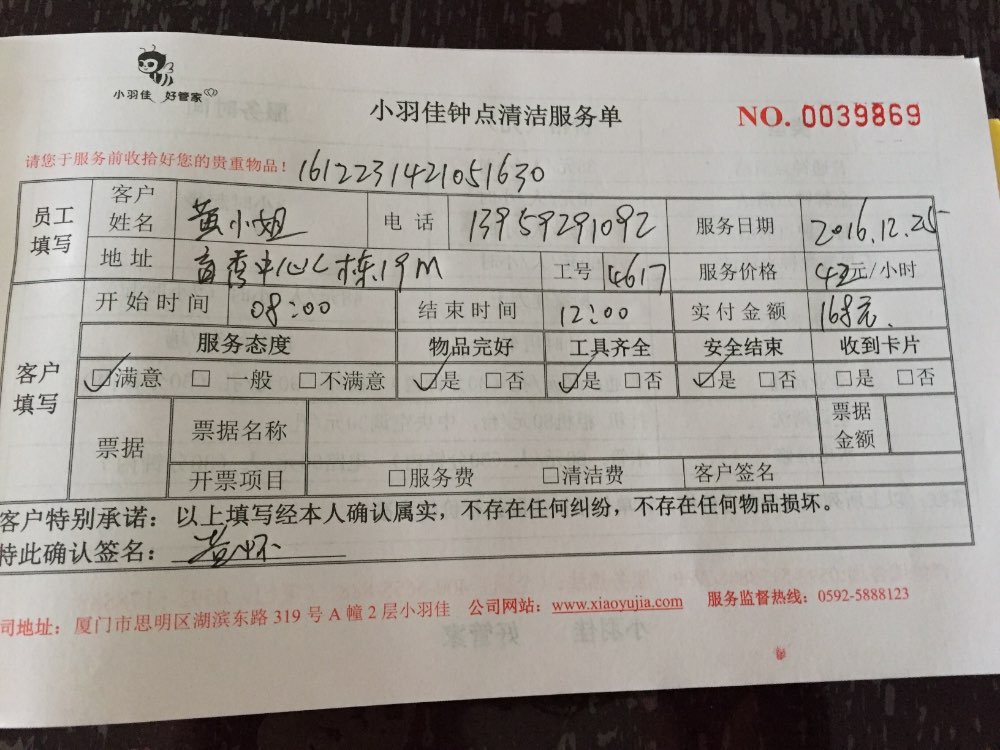 小羽佳 好管家
小羽佳钟点清洁服务单
NO. 0039869
请您于服务前收拾好您的贵重物品！ 1612231421051630
员工填写 客户姓名 黄小姐 电话 13959291092 服务日期 2016.12.25
地址 育秀中心L栋19M 工号 4617 服务价格 42元/小时
客户填写 开始时间 08:00 结束时间 12:00 实付金额 168元.
服务态度 物品完好 工具齐全 安全结束 收到卡片
☑满意 □一般 □不满意 ☑是 □否 ☑是 □否 ☑是 □否 □是 □否
票据 票据名称 票据金额
开票项目 □服务费 □清洁费 客户签名
客户特别承诺：以上填写经本人确认属实，不存在任何纠纷，不存在任何物品损坏。
特此确认签名：
司地址：厦门市思明区湖滨东路 319 号 A 幢 2 层小羽佳 公司网站：www.xiaoyujia.com 服务监督热线：0592-5888123